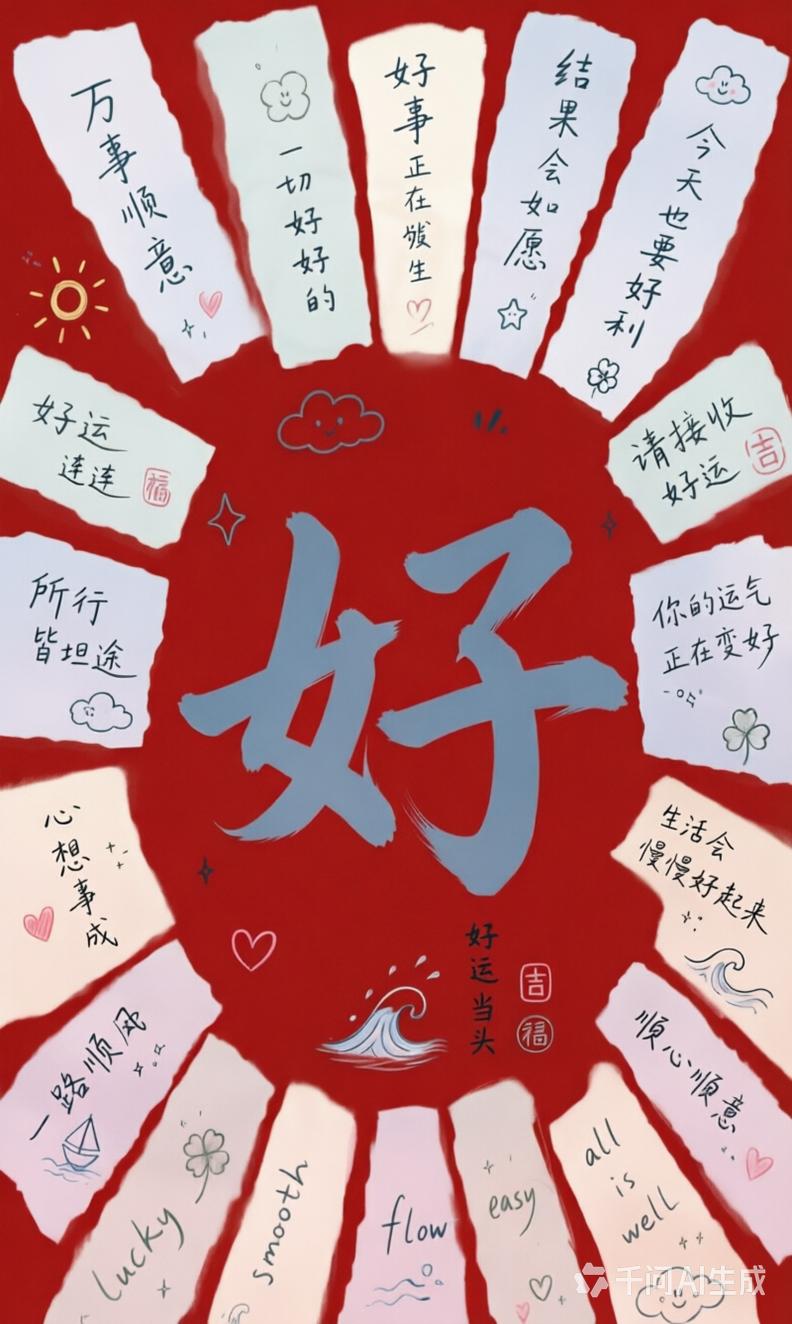 万事顺意
一切好好的
好事正在发生
结果会如愿
今天也要好利
好运
连连
福
请接收
好运
吉
所行
皆坦途
你的运气
正在变好
好
心想事成
生活会
慢慢好起来
好运当头
吉
福
一路顺风
顺心顺意
lucky
smooth
flow
easy
all
is
well
千问AI生成